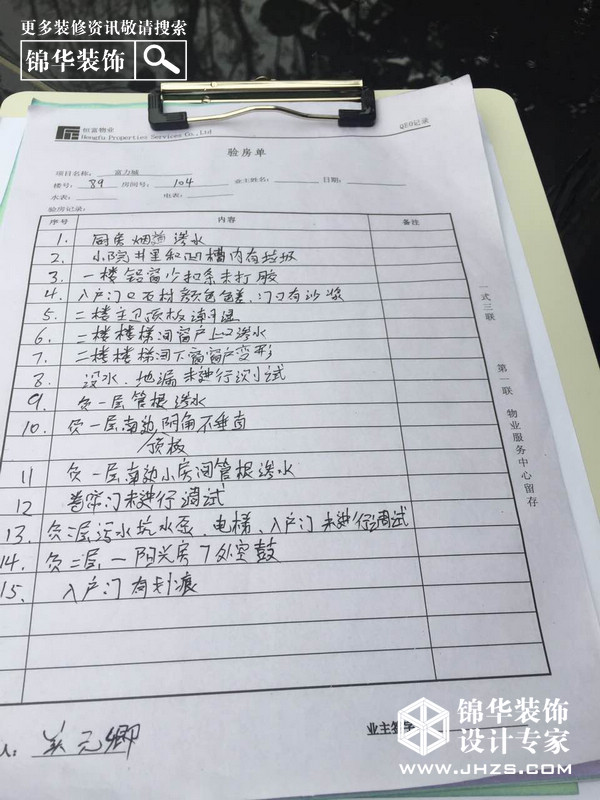 更多装修资讯敬请搜索
锦华装饰
恒富物业
Hengfu Properties Services Co., Ltd
QEO记录
验房单
项目名称: 富力城
楼号: 89 房间号: 104 业主姓名: 日期:
水表: 电表:
验房记录:
序号 内容 备注
1. 厨房烟道渗水
2. 小院井里和凹槽内有垃圾
3. 一楼铝窗少扣条未打胶
4. 入户门口石材颜色色差、门口有沙浆
5. 二楼主卫顶板潮湿
6. 二楼楼梯间窗户上口渗水
7. 二楼楼梯间下窗窗户变形
8. 没水、地漏未进行测试
9. 负一层管根渗水
10. 负一层南边阴角不垂直
顶板
11 负一层南边小房间管根渗水
12 首层门未进行调试
13. 负二层污水坑水泵、电梯、入户门未进行调试
14. 负二层、一阳光房7处空鼓
15. 入户门有划痕
一式三联 第一联 物业服务中心留存
人:
业主签字
锦华装饰
设计专家
www.JHZS.com